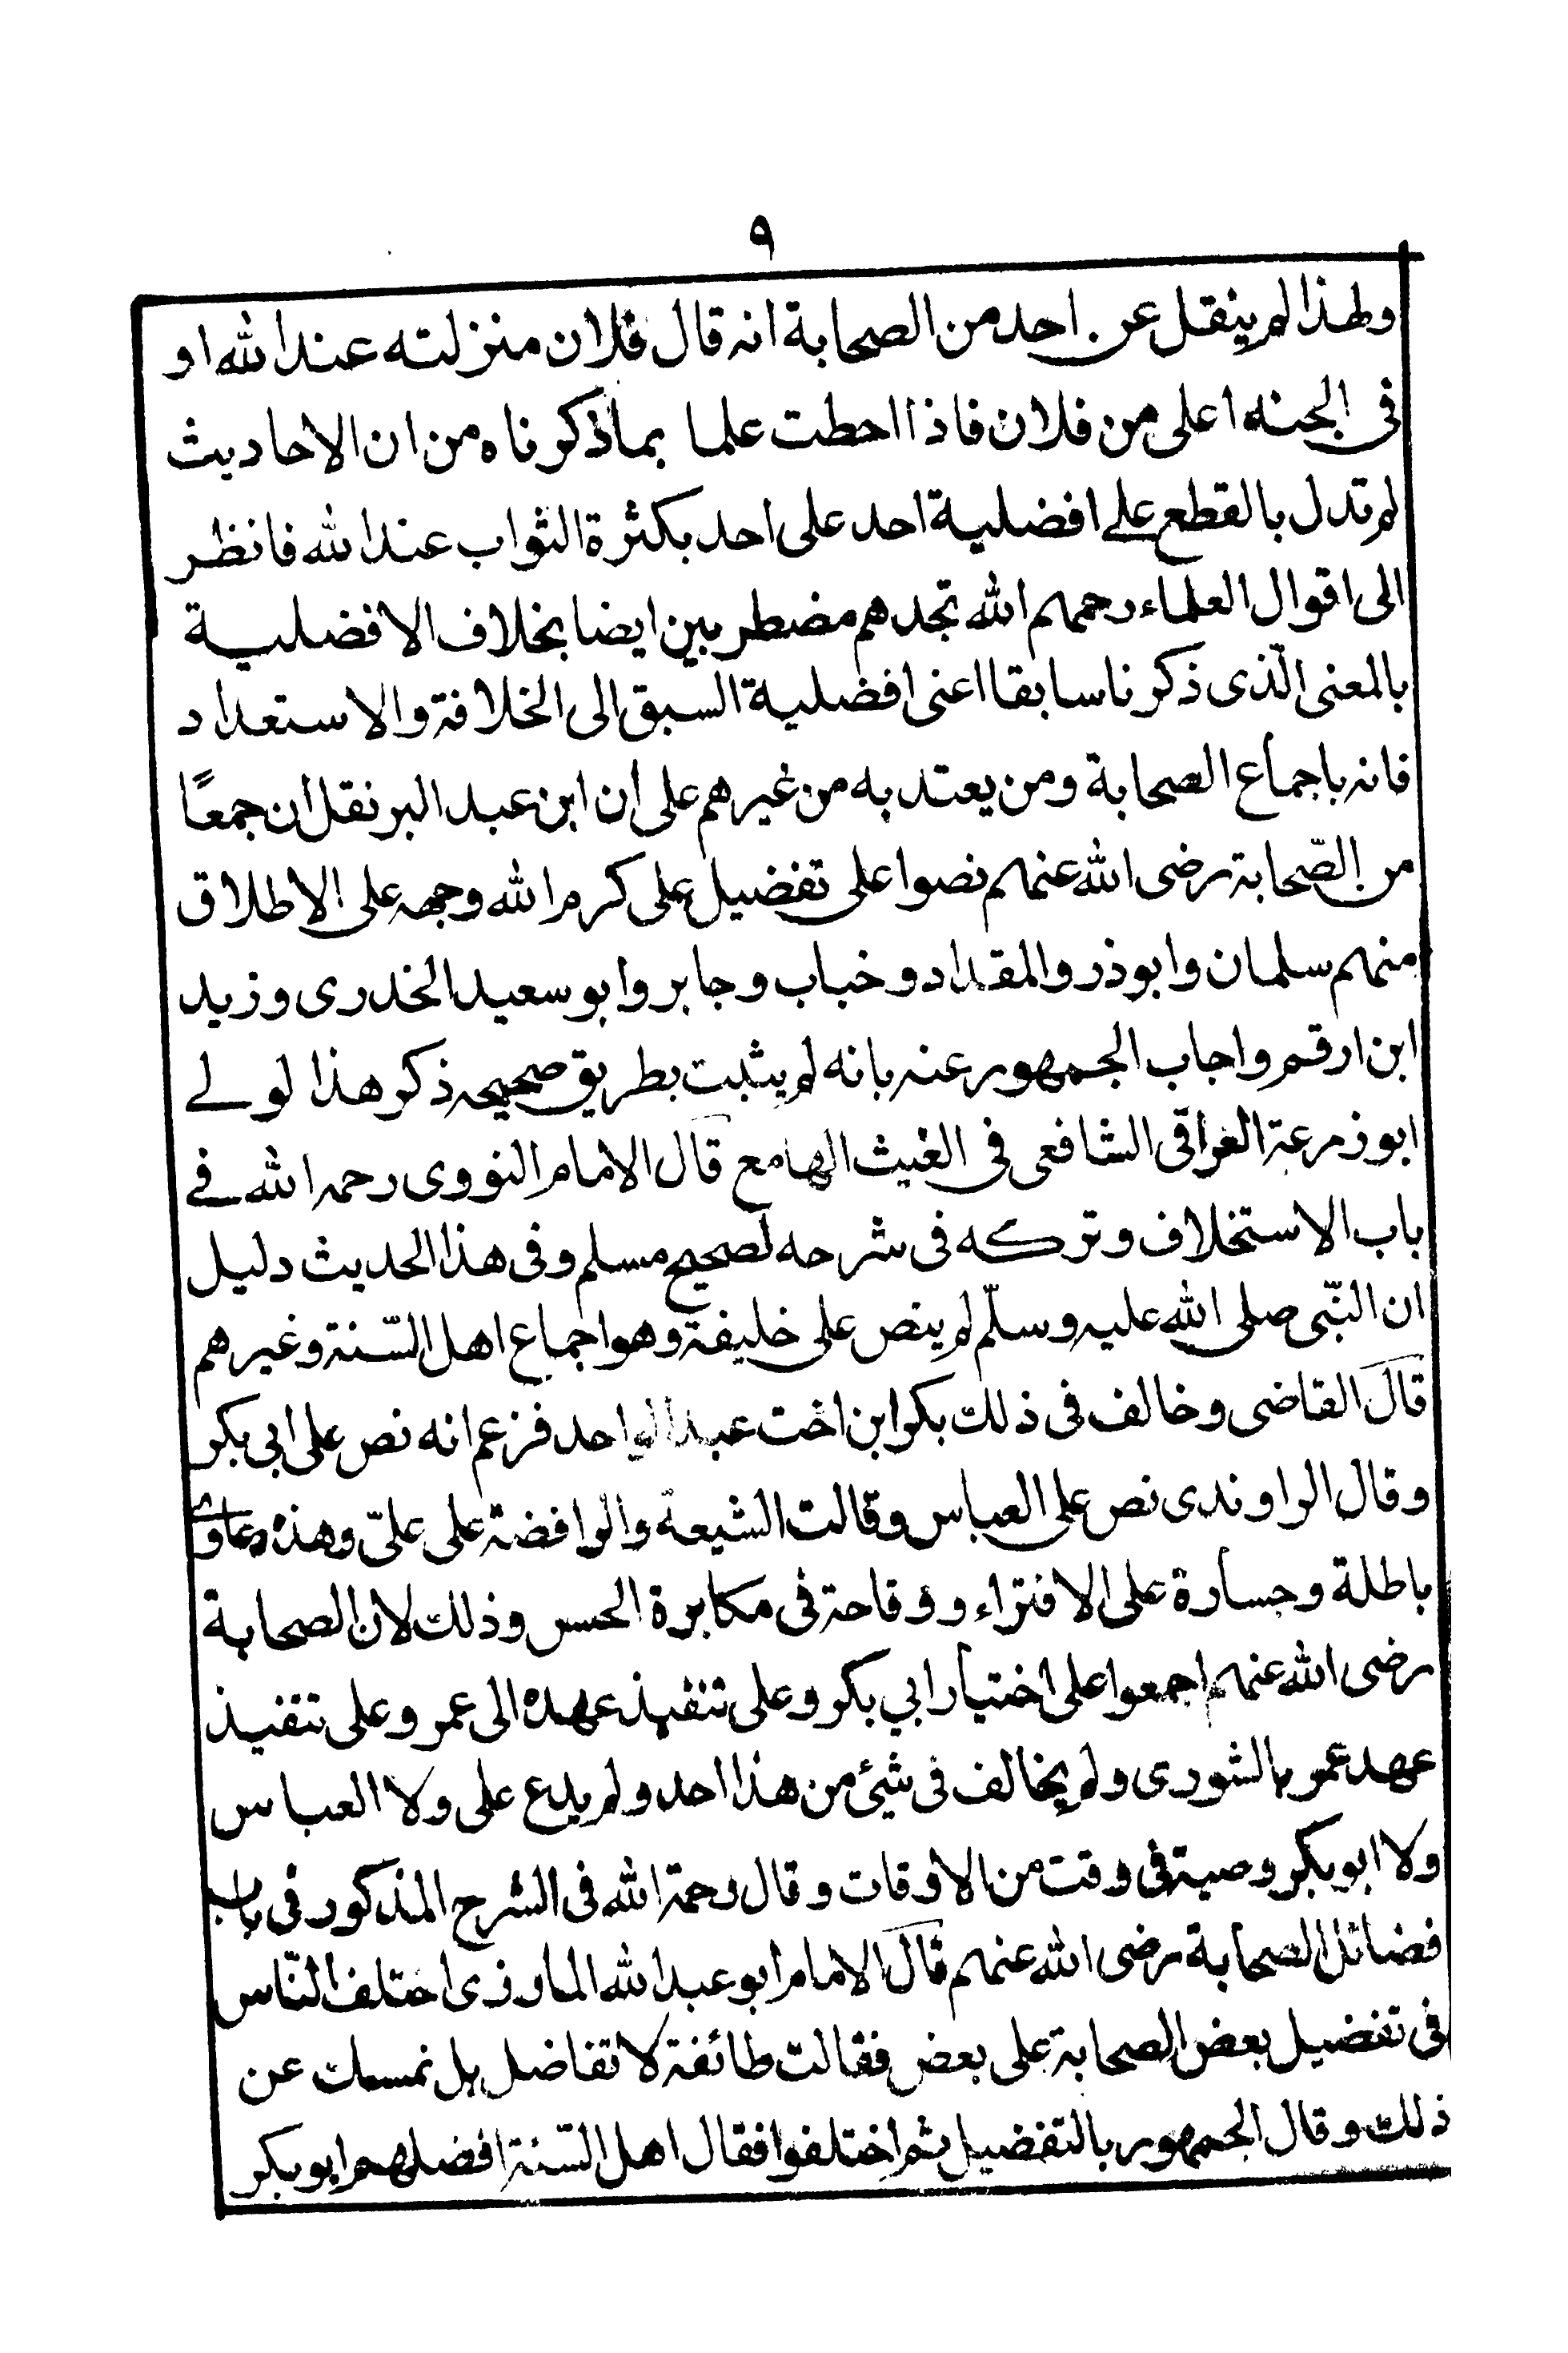 ٩
ولهذا لم ينقل عن احد من الصحابة انه قال فلان منزلته عند الله او
فى الجنه اعلى من فلان فاذا احطت علما بماذكرناه من ان الاحاديث
لم تدل بالقطع علے افضلية احد على احد بكثرة الثواب عند الله فانظر
الى اقوال العلماء رحمهم الله تجدهم مضطربين ايضا بخلاف الافضلية
بالمعنى الّذى ذكرنا سابقا اعنى افضلية السبق الى الخلافة والاستعداد
فانه باجماع الصحابة ومن يعتد به من غيرهم على ان ابن عبد البر نقل ان جمعًا
من الصّحابة رضى الله عنهم نصوا على تفضيل على كرم الله وجهه على الاطلاق
منهم سلمان وابوذر والمقداد وخباب وجابر وابو سعيد الخدرى وزيد
ابن ارقم واجاب الجمهور عنه بانه لم يثبت بطريق صحيحه ذكر هذا لولے
ابوزرعة العراقى الشافعى فى الغيث الهامع قال الامام النووى رحمه الله فے
باب الاستخلاف وتركه فى شرحه لصحيح مسلم وفى هذا الحديث دليل
ان النّبى صلى الله عليه وسلّم لم ينص على خليفة وهو اجماع اهل السّنة وغيرهم
قال القاضى وخالف فى ذلك بكر ابن اخت عبد الواحد فزعم انه نص على ابى بكر
وقال الراوندى نص على العباس وقالت الشيعة والرافضة على علىّ وهذه دعاوى
باطلة وجسارة على الافتراء ووقاحة فى مكابرة الحس وذلك لان الصحابة
رضى الله عنهم اجمعوا على اختيار ابي بكر وعلى تنفيذ عهده الى عمر وعلى تنفيذ
عهد عمر بالشورى ولم يخالف فى شيئ من هذا احد ولم يدع على ولا العباس
ولا ابو بكر وصية فى وقت من الاوقات وقال رحمة الله فى الشرح المذكور فى باب
فضائل الصحابة رضى الله عنهم قال الامام ابو عبد الله المازرى اختلف النّاس
فى تفضيل بعض الصحابة على بعض فقالت طائفة لا تفاضل بل نمسك عن
ذلك وقال الجمهور بالتفضيل ثم اختلفوا فقال اهل السّنة افضلهم ابو بكر